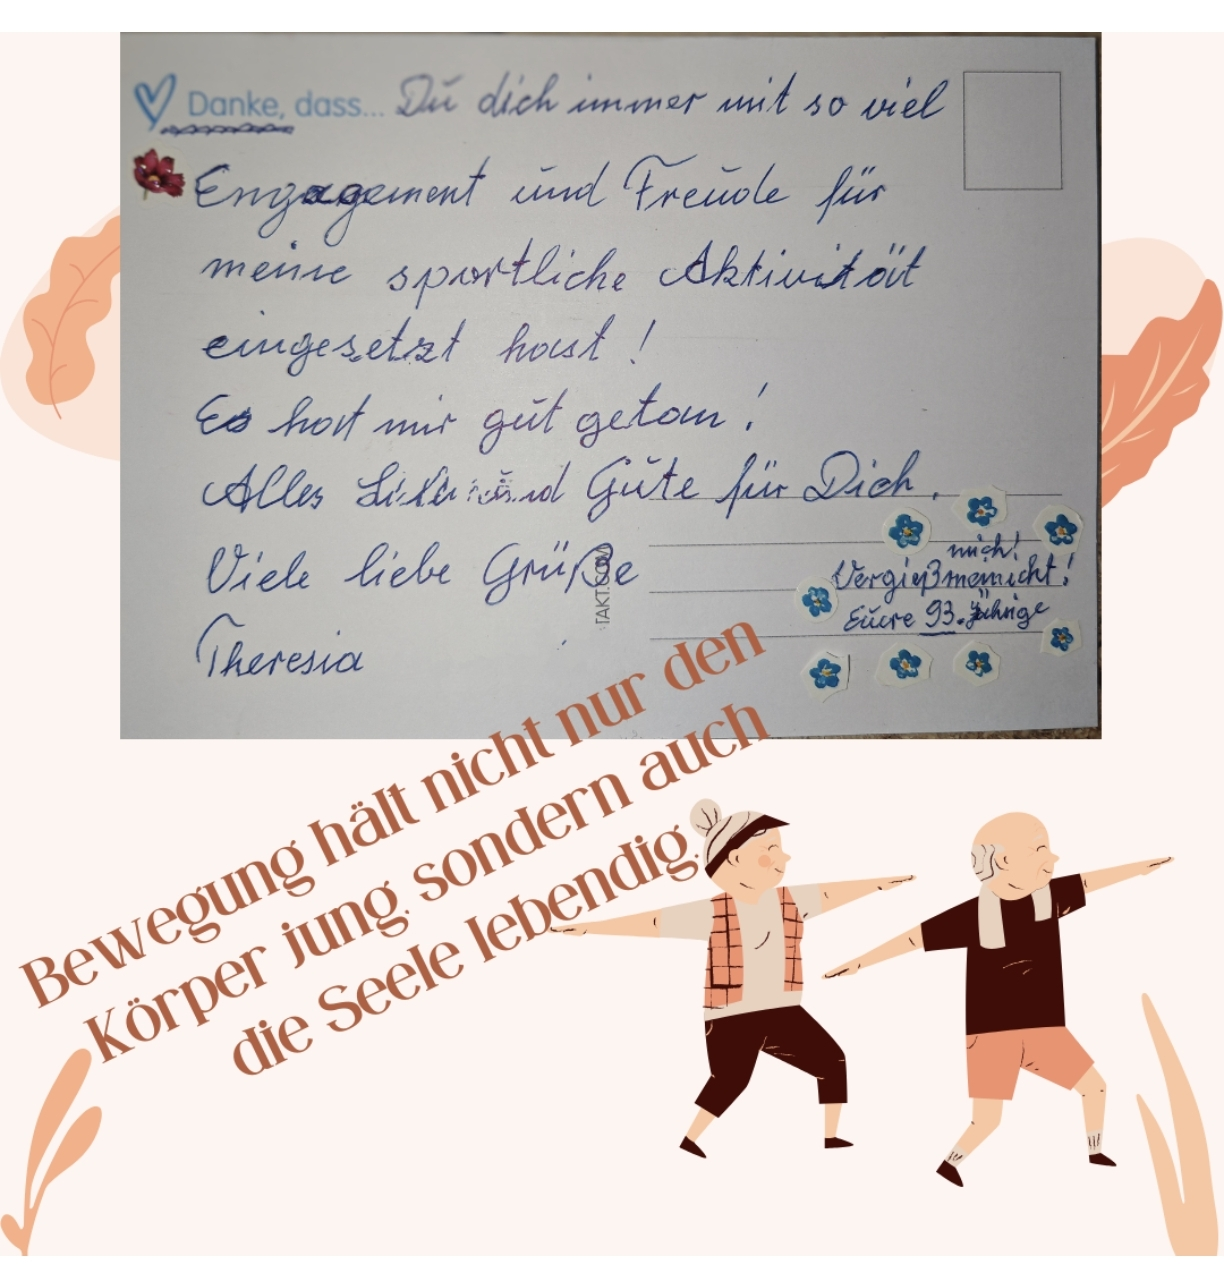 Danke, dass... Du dich immer mit so viel
Engagement und Freude für
meine sportliche Aktivität
eingesetzt hast!
Es hat mir gut getan!
Alles und Gute für Dich.
Viele liebe Grüße
Theresia
mich!
Vergißmeinnicht!
Eure 93. jährige
TAKT.COM
Bewegung hält nicht nur den
Körper jung sondern auch
die Seele lebendig.